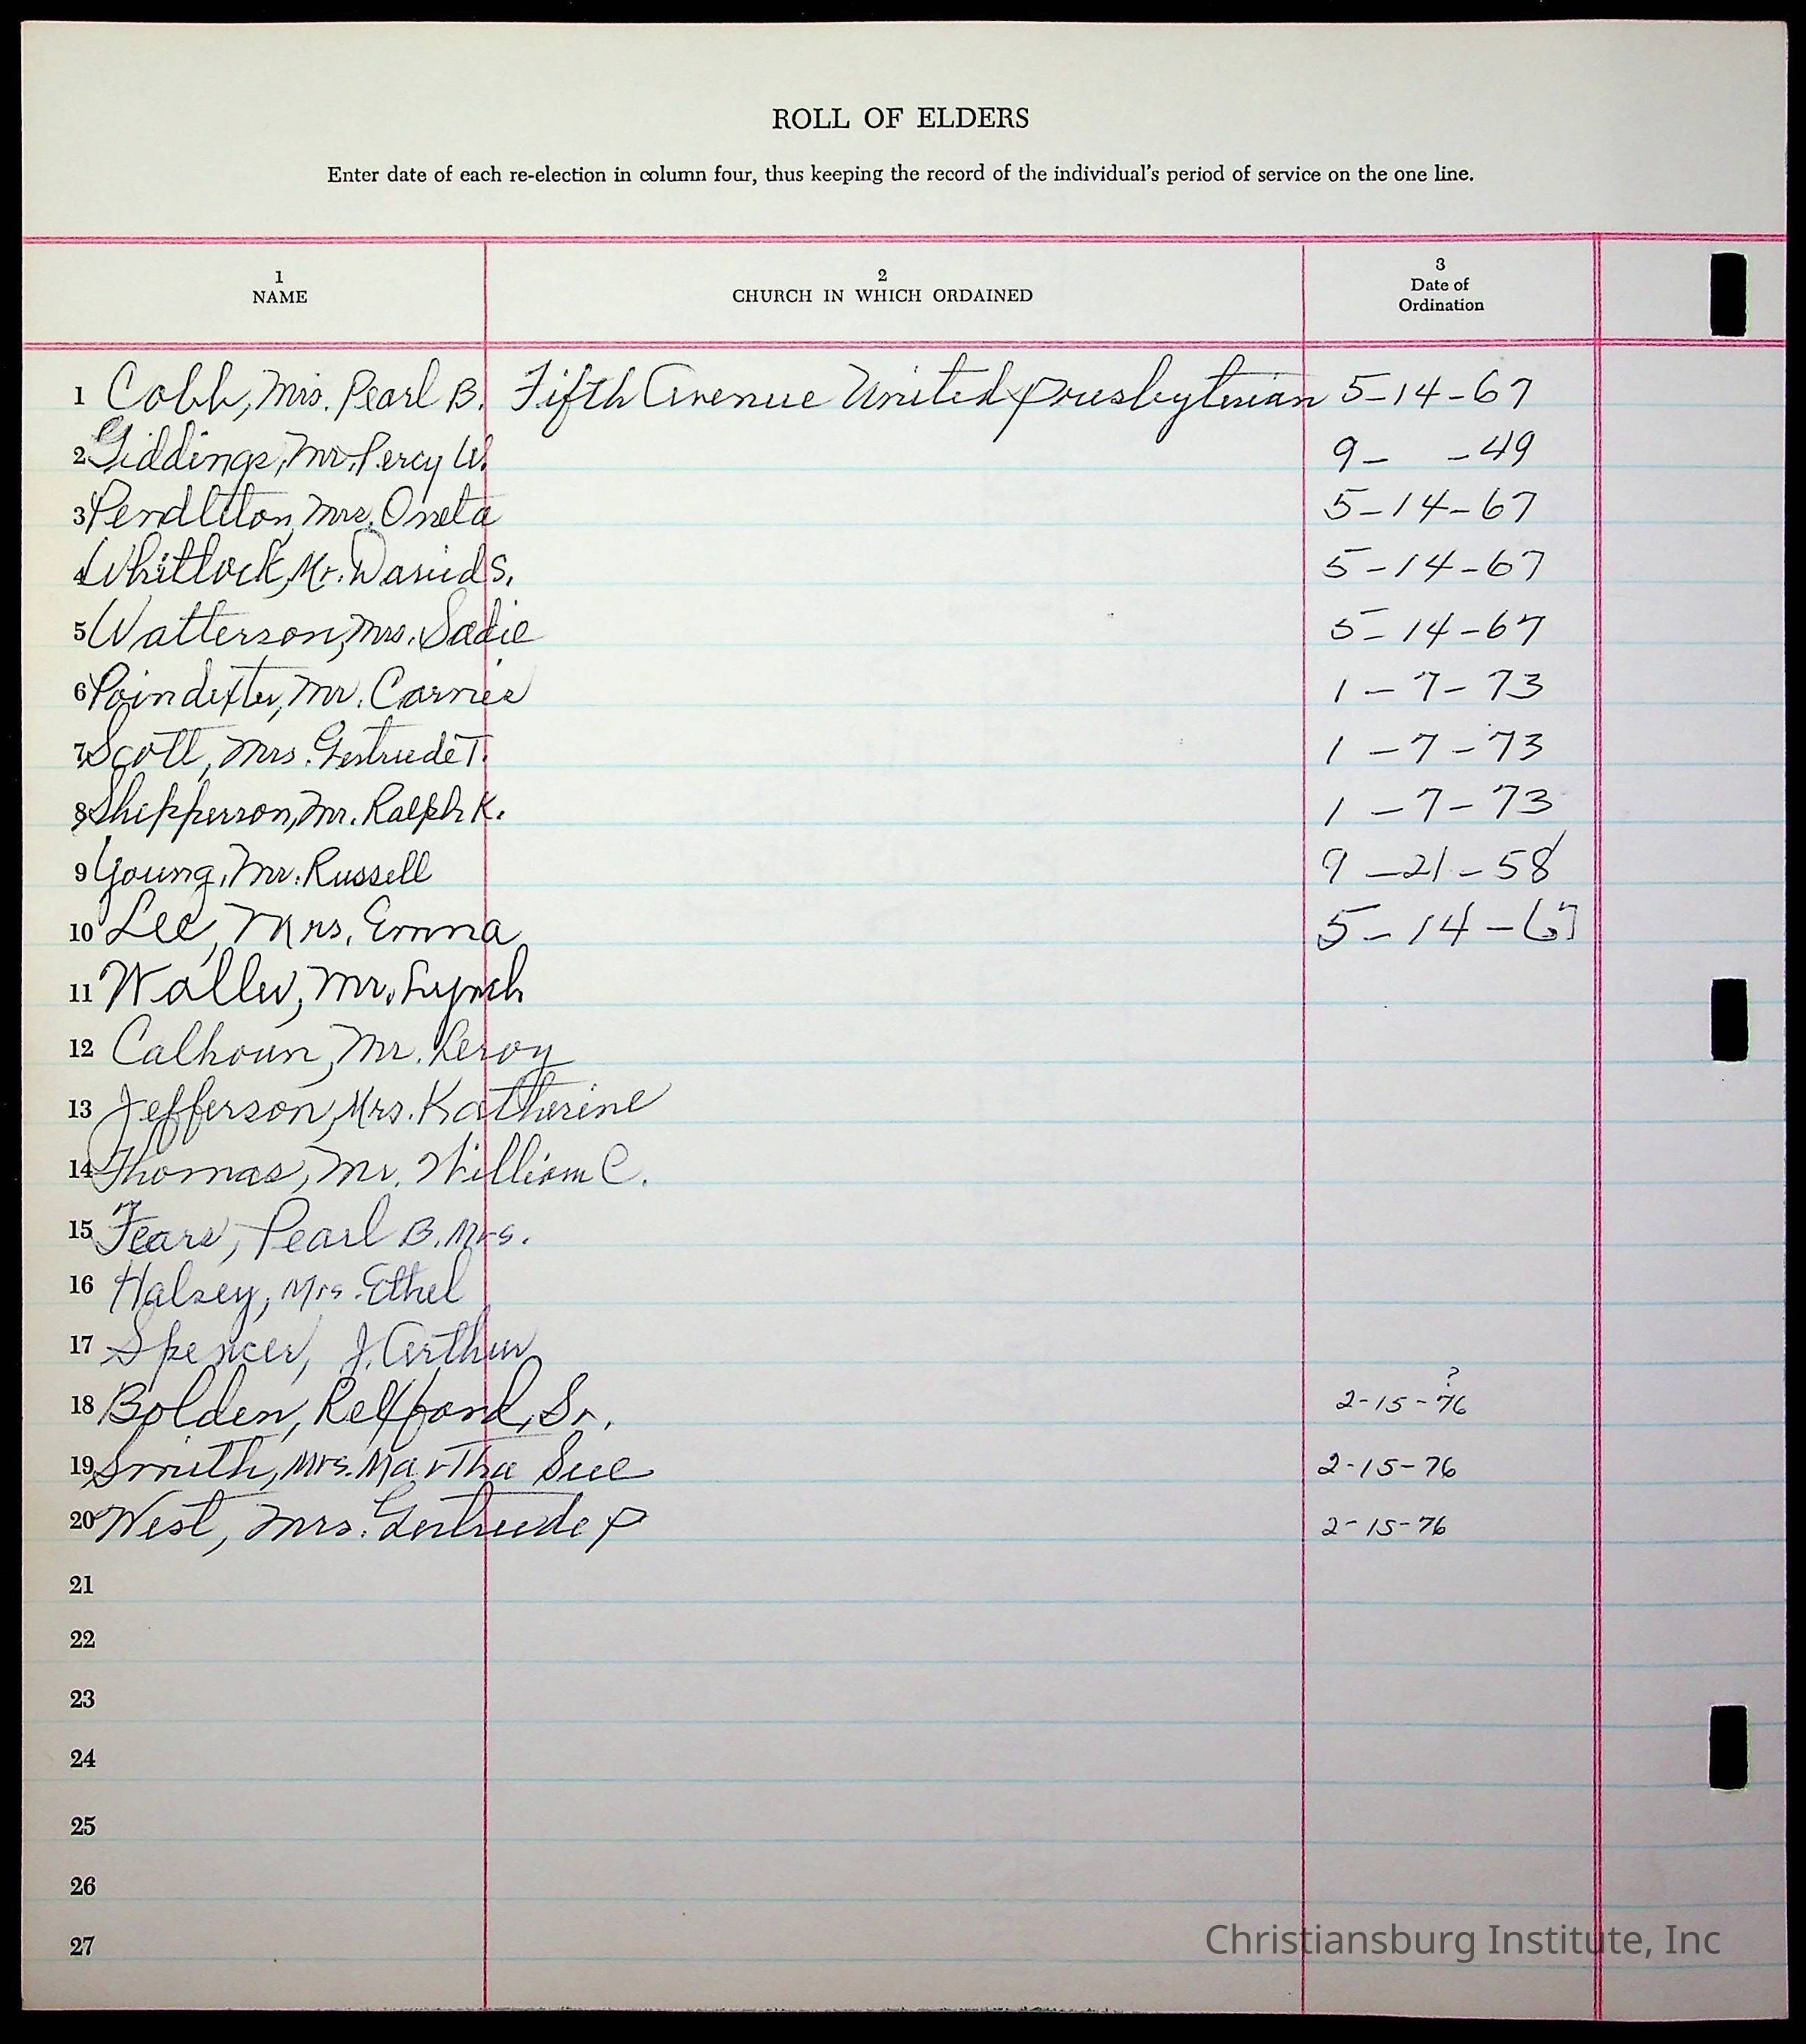 ROLL OF ELDERS
Enter date of each re-election in column four, thus keeping the record of the individual's period of service on the one line.
1 NAME
2 CHURCH IN WHICH ORDAINED
3 Date of Ordination
1 Cobb, Mrs. Pearl B. Fifth Avenue United Presbyterian 5-14-67
2 Giddings, Mr. Percy W. 9- -49
3 Pendleton, Mrs. Oneta 5-14-67
4 Whitlock, Mr. David S. 5-14-67
5 Watterson, Mrs. Sadie 5-14-67
6 Poindexter, Mr. Carnie 1-7-73
7 Scott, Mrs. Gertrude T. 1-7-73
8 Shepperson, Mr. Ralph K. 1-7-73
9 Young, Mr. Russell 9-21-58
10 Lee, Mrs. Emma 5-14-67
11 Waller, Mr. Lynch
12 Calhoun, Mr. Leroy
13 Jefferson, Mrs. Katherine
14 Thomas, Mr. William C.
15 Fears, Pearl B. Mrs.
16 Halsey, Mrs. Ethel
17 Spencer, J. Arthur
?
18 Bolden, Relfford, Sr. 2-15-76
19 Smith, Mrs. Martha Sue 2-15-76
20 West, Mrs. Gertrude P 2-15-76
21
22
23
24
25
26
27
Christiansburg Institute, Inc